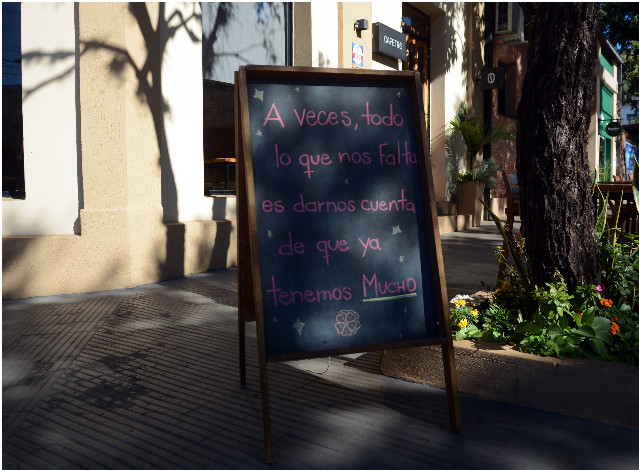 CAFETTO
A veces, todo
lo que nos Falta
es darnos cuenta
de que ya
tenemos MUCHO